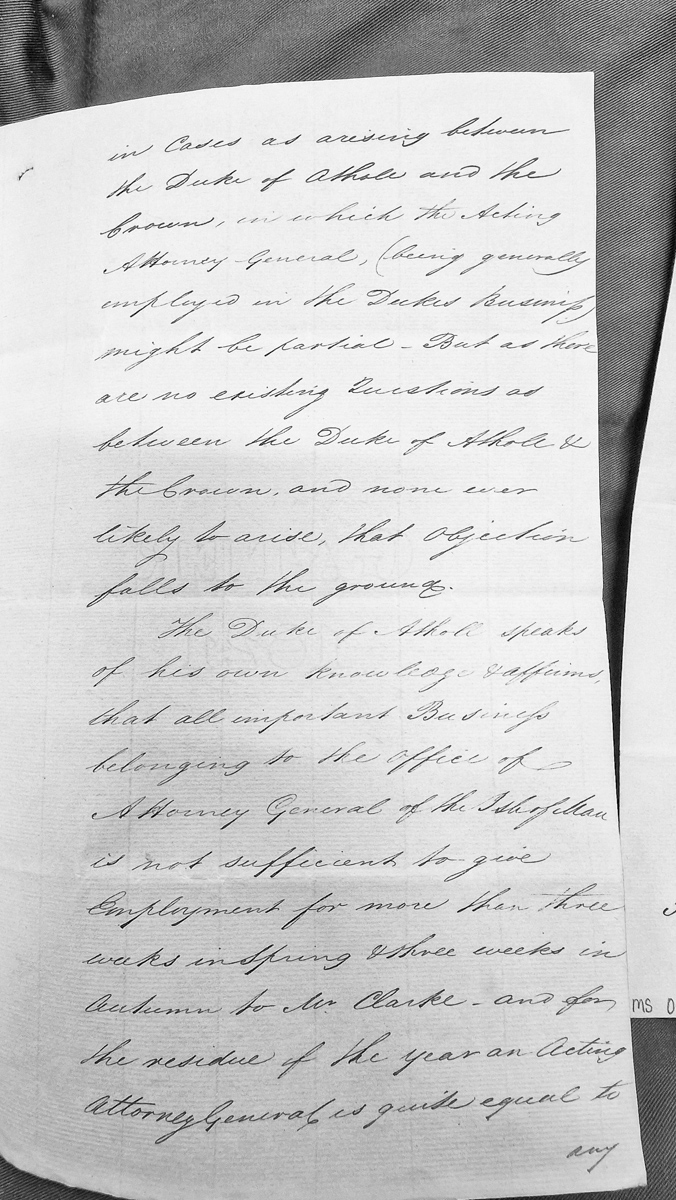 in Cases as arising between
the Duke of Athole and the
Crown, in which the Acting
Attorney General, (being generally
employed in the Dukes Business)
might be partial - But as there
are no existing Questions as
between the Duke of Athole &
the Crown, and none ever
likely to arise, that Objection
falls to the ground.
The Duke of Atholl speaks
of his own knowledge & affirms,
that all important Business
belonging to the Office of
Attorney General of the Isle of Man
is not sufficient to give
Employment for more than three
weeks in Spring & three weeks in
Autumn to Mr. Clarke - and for
the residue of the year an Acting
Attorney General is quite equal to
any
MS 0